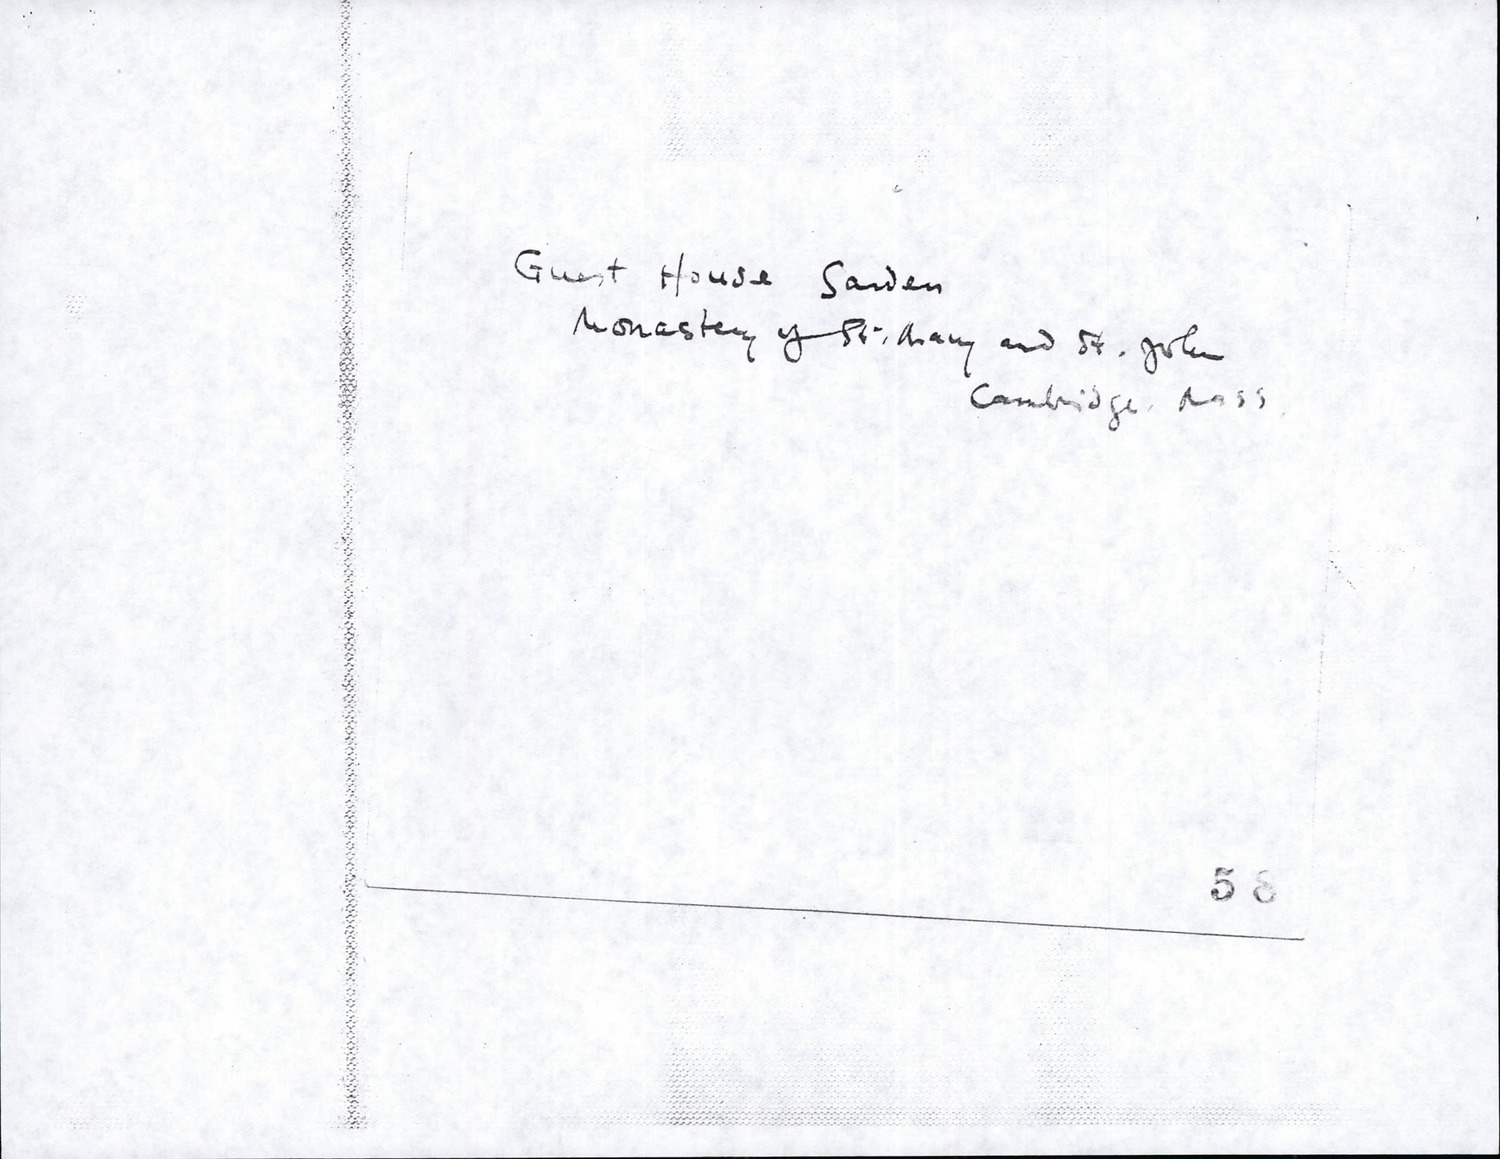 Guest House Garden
Monastery of St. Mary and St. John
Cambridge. Mass.
58